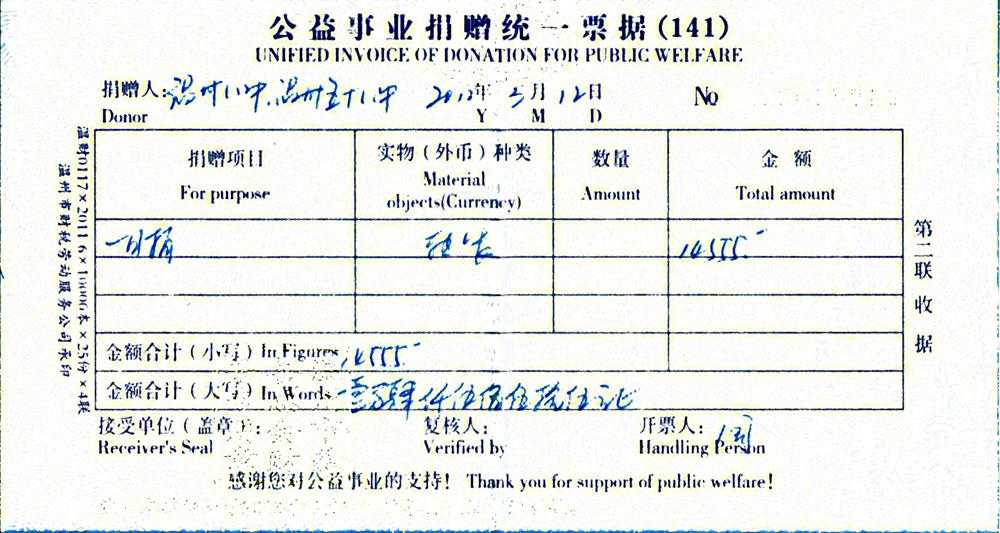 公益事业捐赠统一票据(141)
UNIFIED INVOICE OF DONATION FOR PUBLIC WELFARE
捐赠人: 温州12中、温州五十八中 2012年 3月 12日 No
Donor Y M D
捐赠项目 实物(外币)种类 数量 金额
For purpose Material objects(Currency) Amount Total amount
一日捐 14555.-
金额合计(小写) In Figures 14555.-
金额合计(大写) In Words 壹万肆仟伍佰伍拾伍元正
接受单位(盖章): 复核人: 开票人:
Receiver's Seal Verified by Handling Person
感谢您对公益事业的支持! Thank you for support of public welfare!
第二联 收据
温财0117×2011 6×100000本×25份×4联
温州市财税劳动服务公司承印